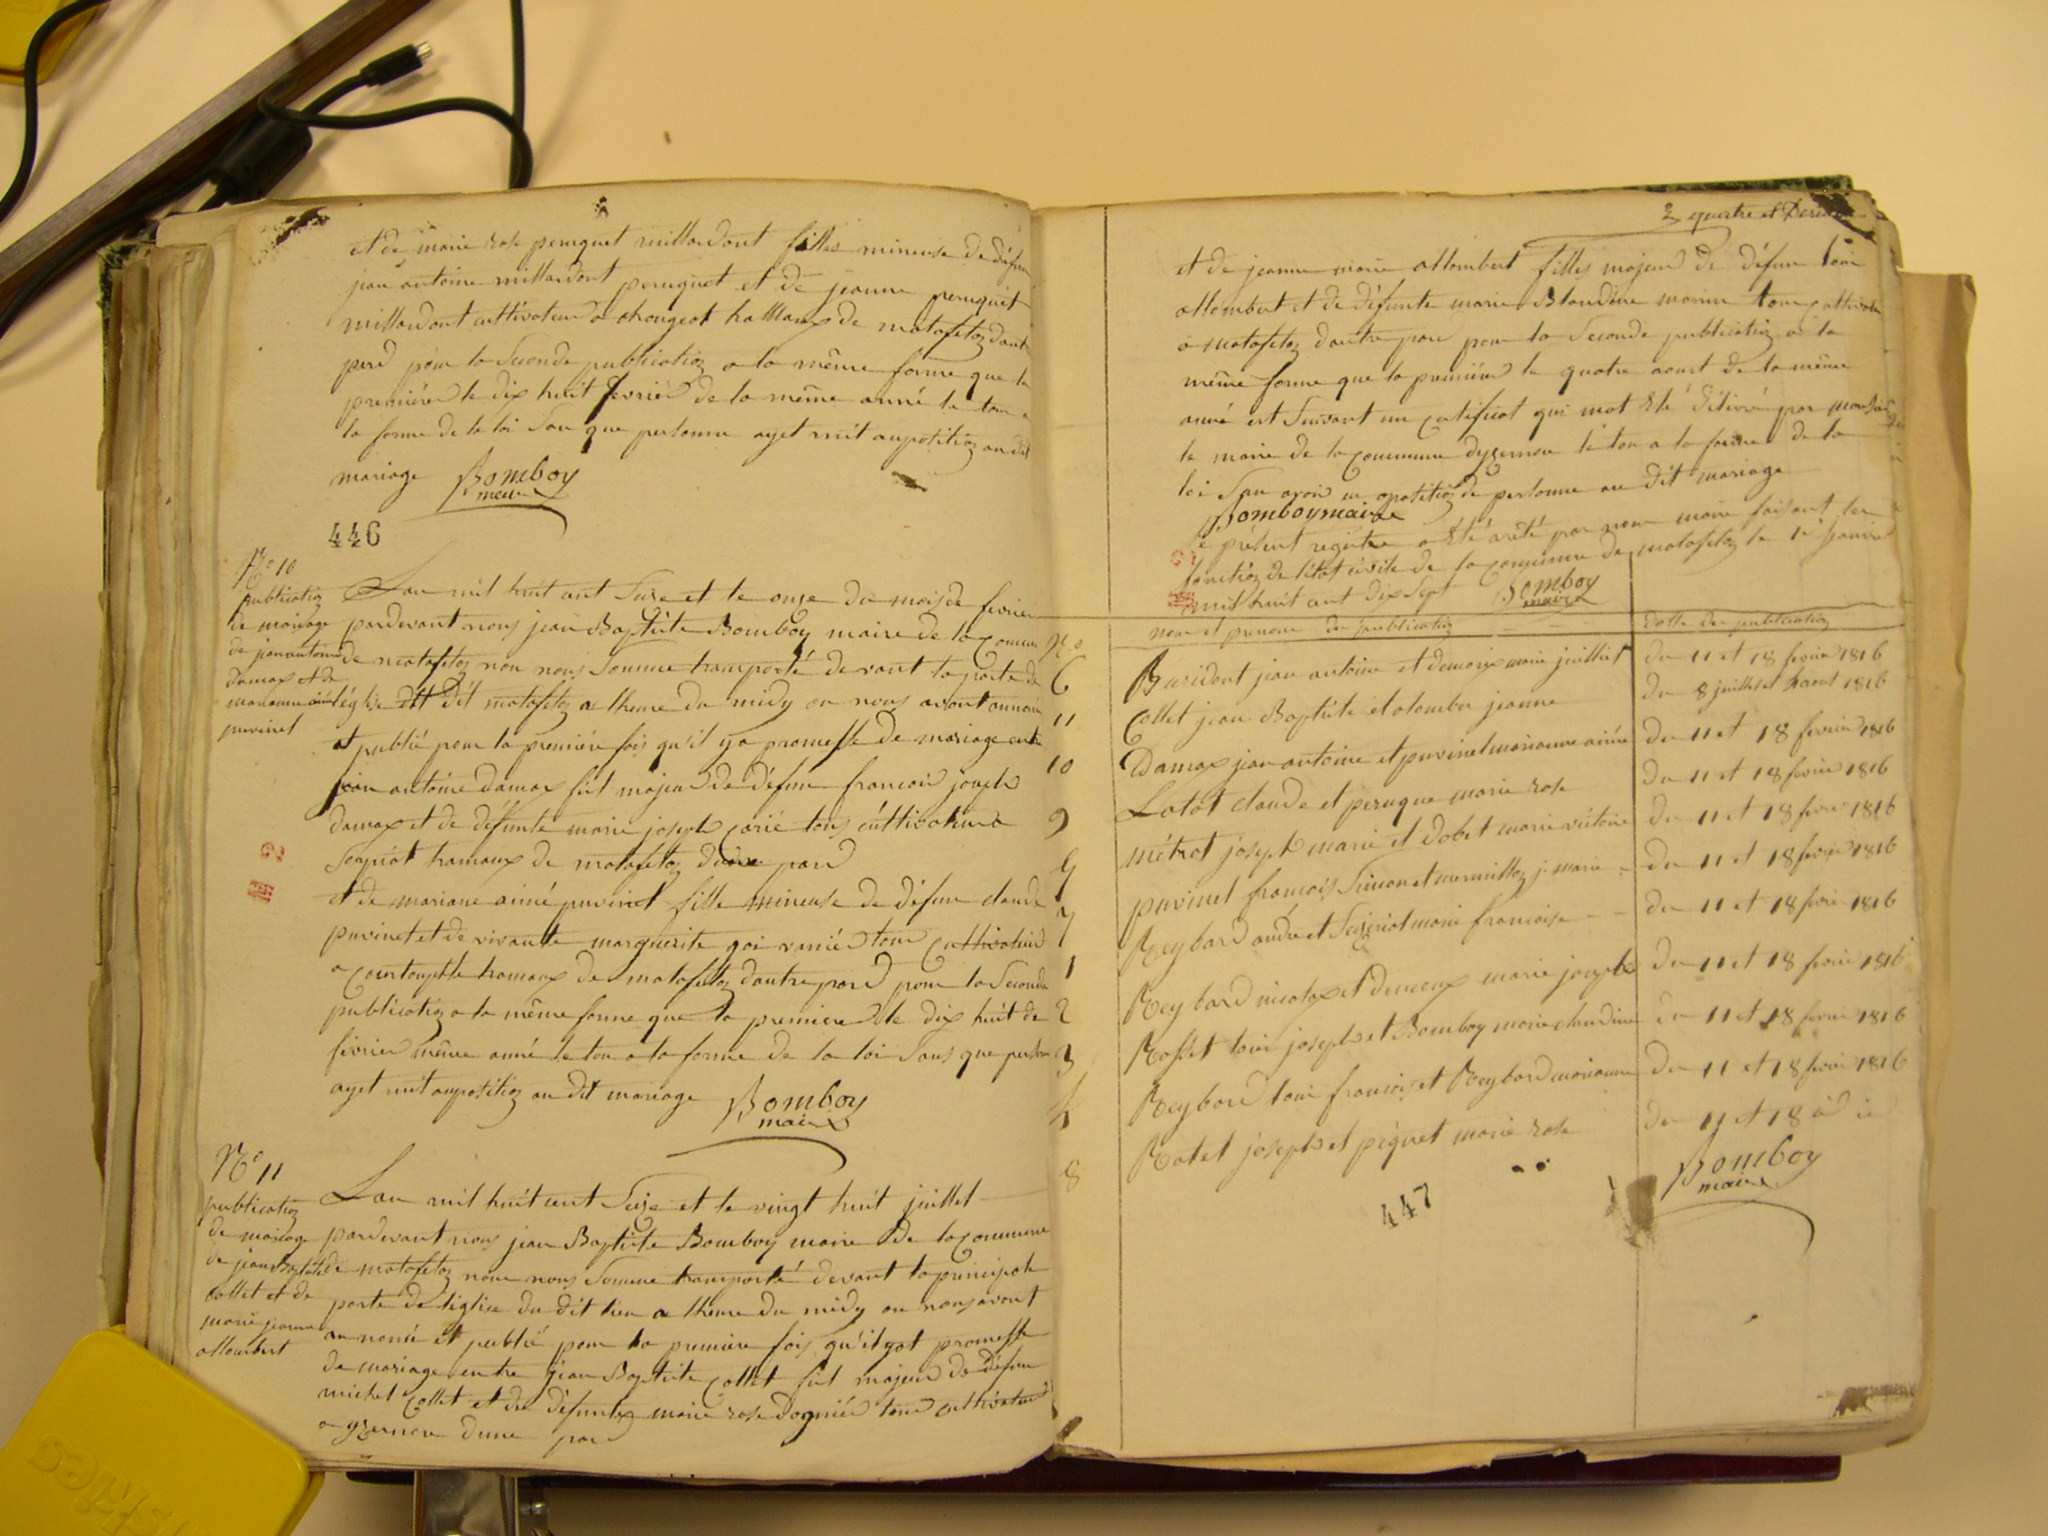 et de marie rose peruquet millardont filles mineuse de défun
jean antoine millardont peruquet et de jeanne peruquet
millardont cultivateur a chougeat hammaux de matafelon dautre
pard pour la seconde publication a la même forme que la
première le dix huit fevrier de la même anné le tou a
la forme de la loi San que personne ayet mit aupotition au dit
mariage Bomboy
maire
446
N° 10
publication
de mariage
de jean antoine
damax et de
marianne aimé
puvinel
Lan mil huit cent Seize et le onze du mois de fevrier
pardevant nous jean Baptiste Bomboy maire de la Commune
de matafelon nou nous Somme transporté devant la porte de
léglise dit matafelon a lheure du midy ou nous avont annoncé
et publié pour la première fois qu'il ya promesse de mariage entre
jean antoine damax fil majeur de défun francois joseph
damax et de défunte marie joseph carié tous cultivateur a
Seigriat hamaux de matafelon dune pard
et de mariane aimé puvinel fille mineuse de défun claude
puvinel et de vivante marguerite goiranniér tous Cultivateur
a Courtouphle hamaux de matafelon dautre pard pour la Seconde
publication a la même forme que la premiere le dix huit de
février même anné le tou a la forme de la loi Sans que persone
ayet mit aupotition au dit mariage Bomboy
maire
N° 11
publication
de mariage
de jean Baptiste
Collet et de
marie jeanne
allombert
Lan mil huit cent Seize et le vingt huit juillet
pardevant nous jean Baptiste Bomboy maire de la Commune
de matafelon nou nous Somme transporté devant la principale
porte de léglise du dit lieu a lheure du midy ou nous avont
annoncé et publié pour la premiere fois qu'il yat promesse
de mariage entre jean Baptiste Collet fil majeur de défun
michel Collet et de défunte marie rose dognier tous cultivateur
a yzernore dune par
quatre et
et de jeanne marie allombert filles majeur de défun loui
allombert et de défunte marie Blandine marin tous cultivateur
a matafelon dautre par pour la Seconde publication a la
même forme que la première le quatre aout de la même
anné est Suivant un certificat qui mat été délivré par monsieur
le maire de la Commune dyzernore le tou a la forme de la
loi San avoir eu opotition de personne au dit mariage
Bomboy maire
le présent registre a été arêté par nou maire faisant les
fonction de létat civile de la Commune de matafelon le 1er janvier
mil huit cent dix Sept Bomboy
maire
N° nom et prenom du publication date du publication
6 Buridont jean antoine et demoix marie juillet du 11 et 18 fevrier 1816
11 Collet jean Baptiste et alomber jeanne du 8 juillet et 4 aout 1816
10 Damax jean antoine et puvinel marianne aimée du 11 et 18 fevrier 1816
9 Latat claude et peruque marie rose du 11 et 18 fevrier 1816
5 métrat joseph marie et dobet marie victoire du 11 et 18 fevrier 1816
7 puvinel francois Simon et mermillon j. marie du 11 et 18 fevrier 1816
1 Reybard andré et Seigriat marie francoise du 11 et 18 fevrier 1816
2 Reybard nicolax et marie joseph du 11 et 18 fevrier 1816
3 Rosset loui joseph et Bomboy marie claudine du 11 et 18 fevrier 1816
4 Reybard loui francois et Reybard marianne du 11 et 18 fevrier 1816
8 Ratet joseph et piquet marie rose du 11 et 18
Bomboy
maire
447